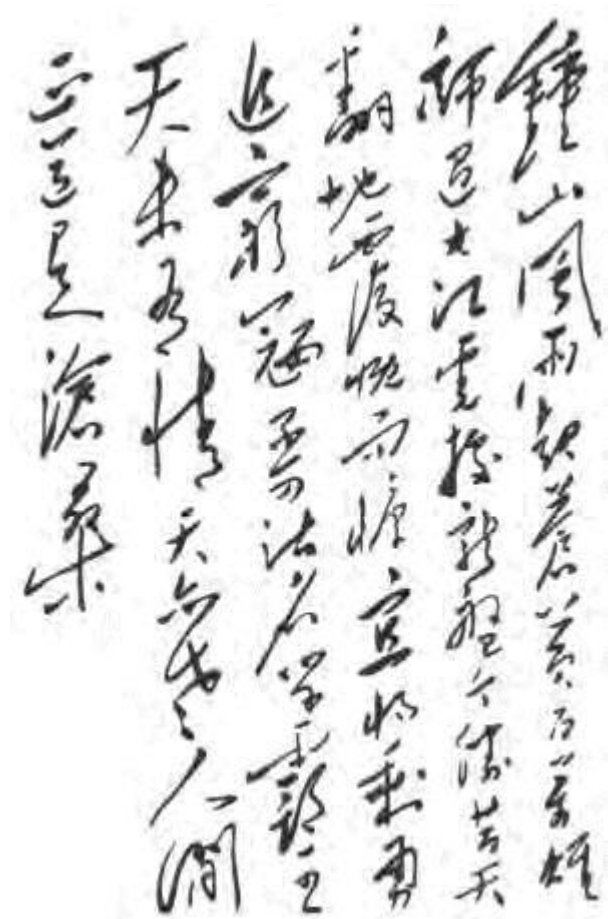 鍾山風雨起蒼黃百萬雄
師過大江虎據龍盤今勝昔天
翻地覆慨而慷宜將剩勇
追窮寇不可沽名學霸王
天未有情天亦老人間
正道是滄桑